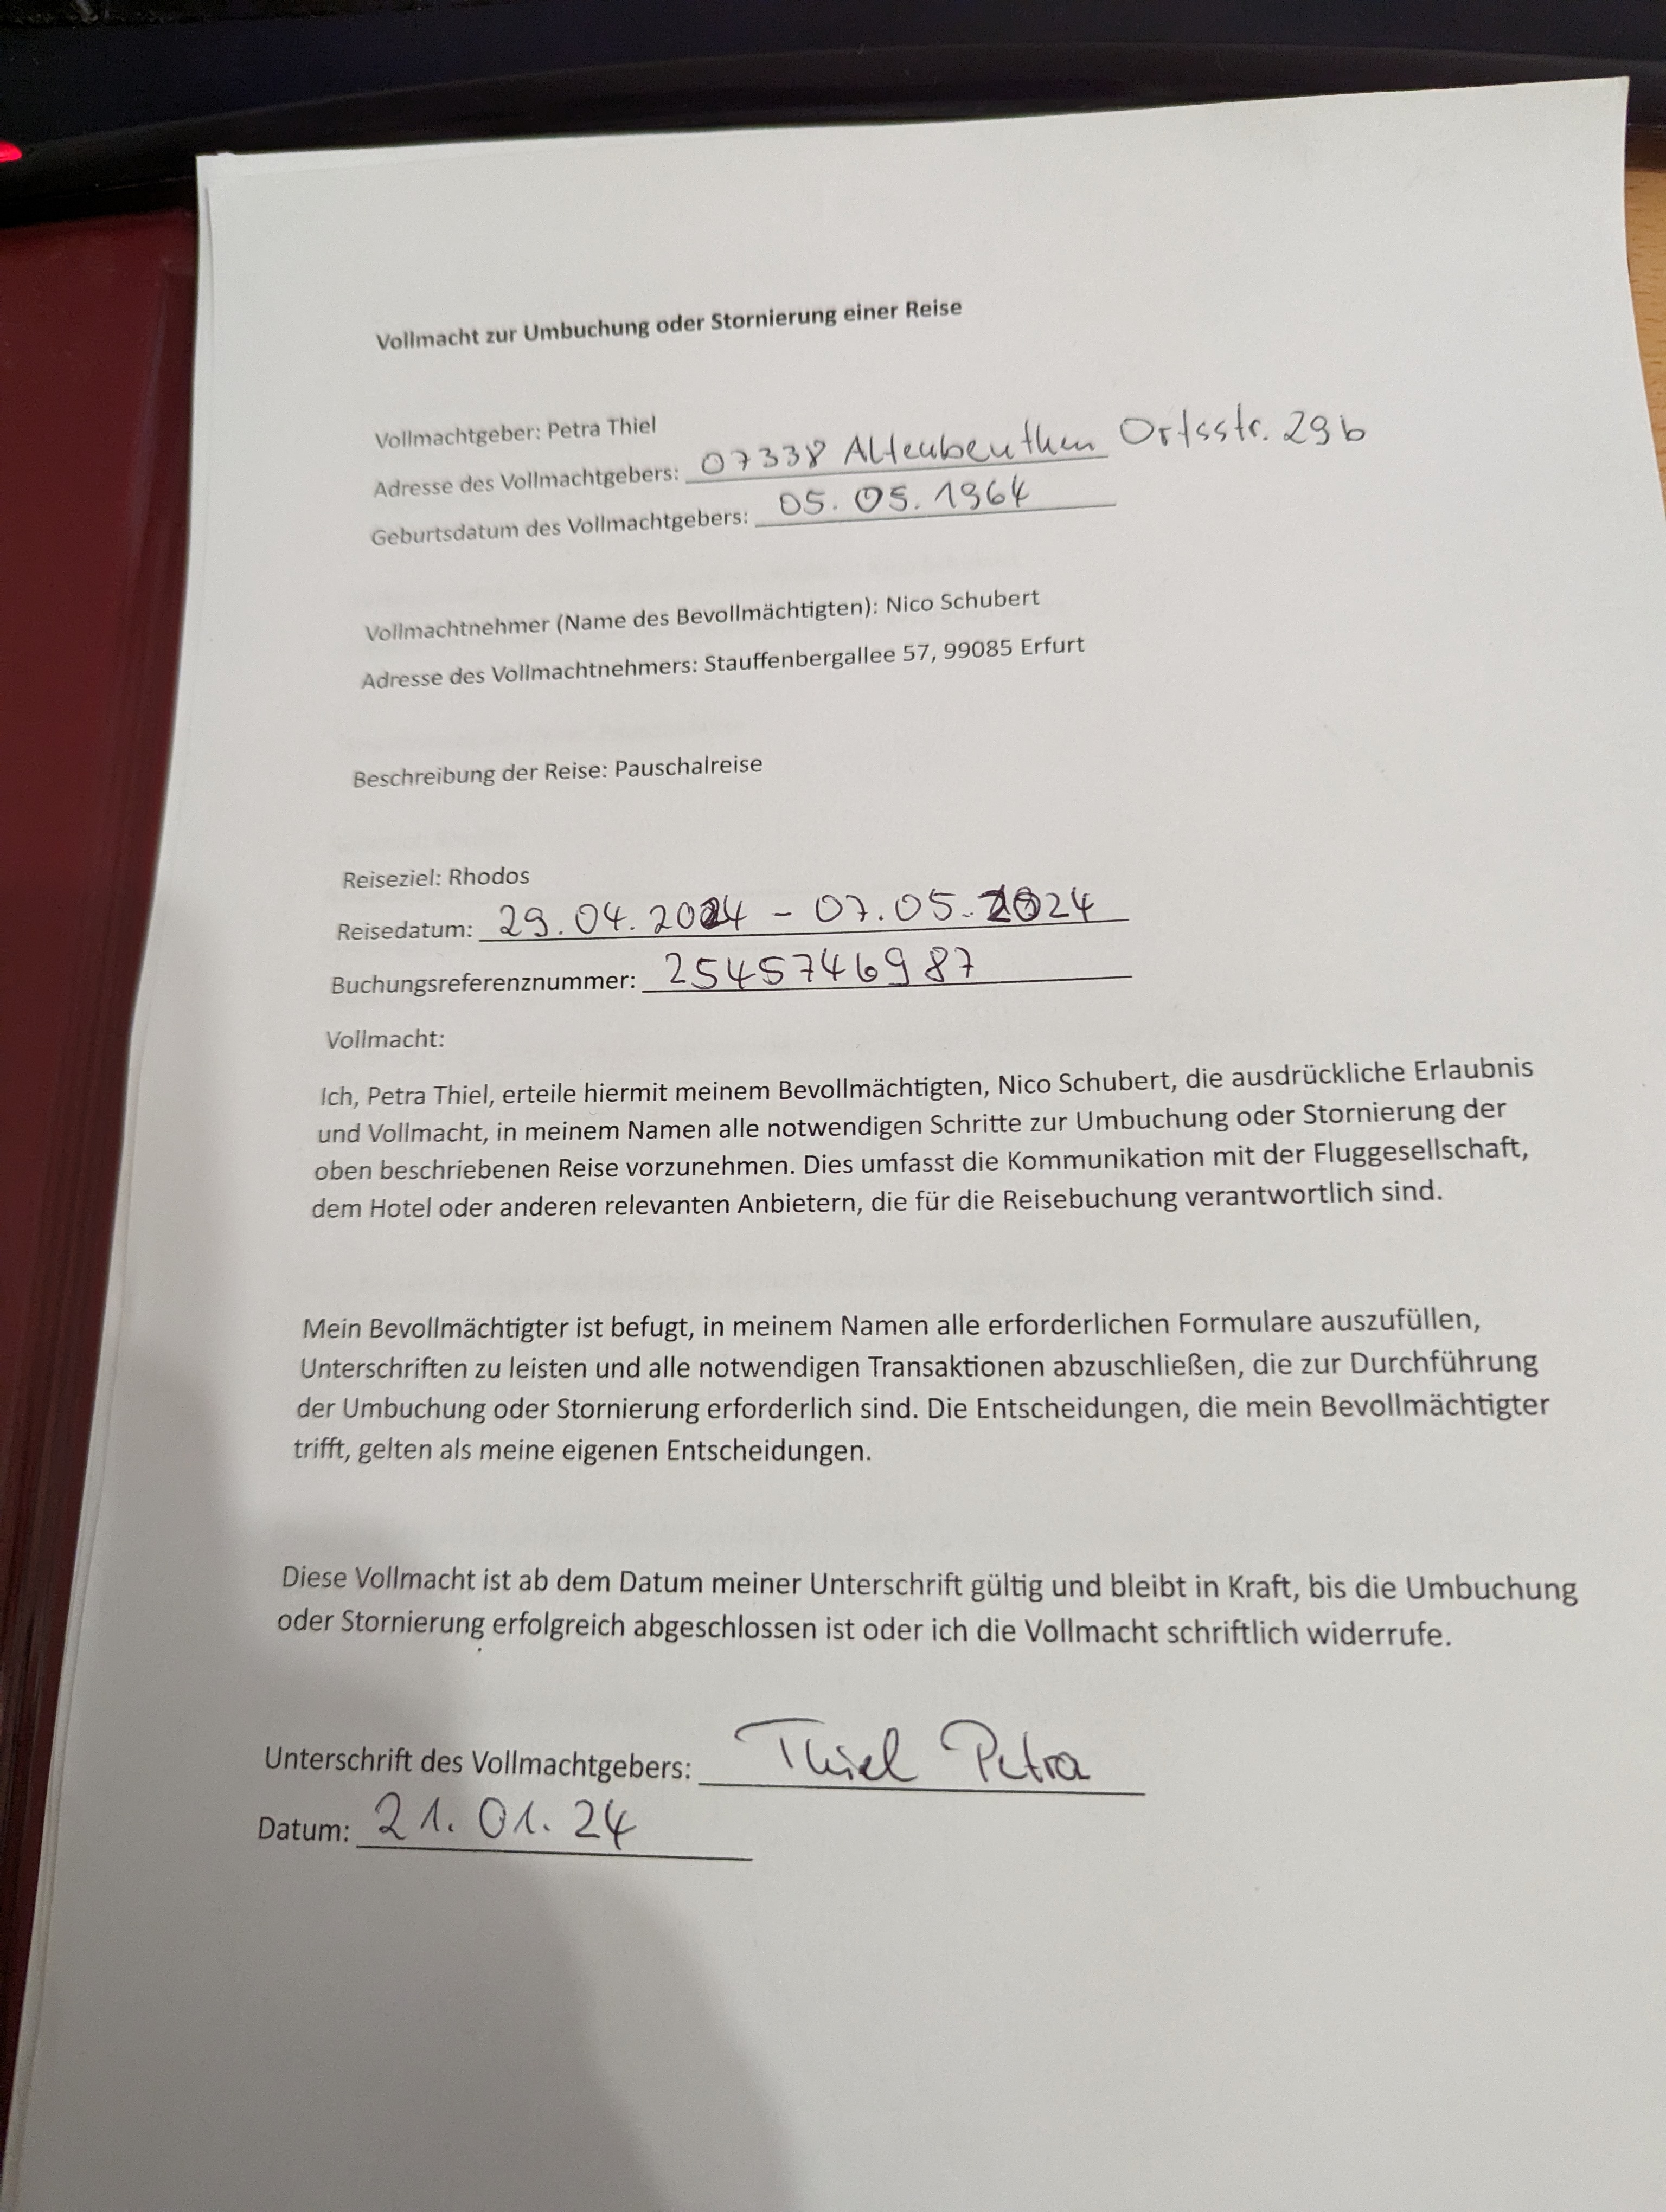 Vollmacht zur Umbuchung oder Stornierung einer Reise
Vollmachtgeber: Petra Thiel
Adresse des Vollmachtgebers: 07338 Altenbeuthen Ortsstr. 29b
Geburtsdatum des Vollmachtgebers: 05.05.1964
Vollmachtnehmer (Name des Bevollmächtigten): Nico Schubert
Adresse des Vollmachtnehmers: Stauffenbergallee 57, 99085 Erfurt
Beschreibung der Reise: Pauschalreise
Reiseziel: Rhodos
Reisedatum: 29.04.2024 - 07.05.2024
Buchungsreferenznummer: 2545746987
Vollmacht:
Ich, Petra Thiel, erteile hiermit meinem Bevollmächtigten, Nico Schubert, die ausdrückliche Erlaubnis
und Vollmacht, in meinem Namen alle notwendigen Schritte zur Umbuchung oder Stornierung der
oben beschriebenen Reise vorzunehmen. Dies umfasst die Kommunikation mit der Fluggesellschaft,
dem Hotel oder anderen relevanten Anbietern, die für die Reisebuchung verantwortlich sind.
Mein Bevollmächtigter ist befugt, in meinem Namen alle erforderlichen Formulare auszufüllen,
Unterschriften zu leisten und alle notwendigen Transaktionen abzuschließen, die zur Durchführung
der Umbuchung oder Stornierung erforderlich sind. Die Entscheidungen, die mein Bevollmächtigter
trifft, gelten als meine eigenen Entscheidungen.
Diese Vollmacht ist ab dem Datum meiner Unterschrift gültig und bleibt in Kraft, bis die Umbuchung
oder Stornierung erfolgreich abgeschlossen ist oder ich die Vollmacht schriftlich widerrufe.
Unterschrift des Vollmachtgebers: Thiel Petra
Datum: 21.01.24